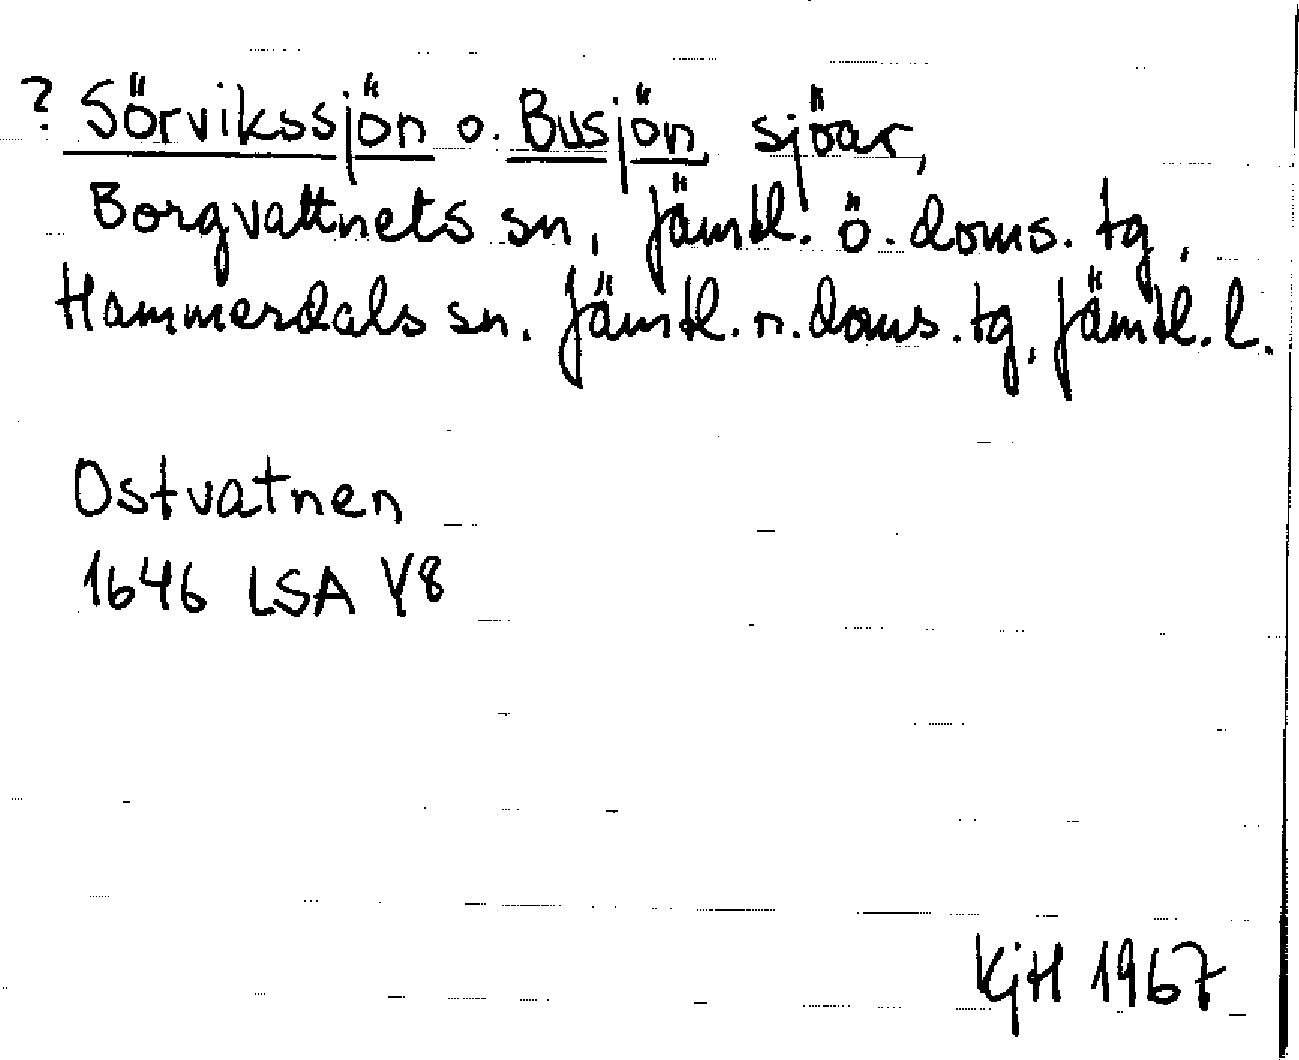 ? Sörvikssjön o. Busjön, sjöar,
Borgvattnets sn, Jämtl. ö. doms. tg,
Hammerdals sn. Jämtl. n. doms. tg, Jämtl. l.
Ostvatnen
1646 LSA Y8
KjH 1967